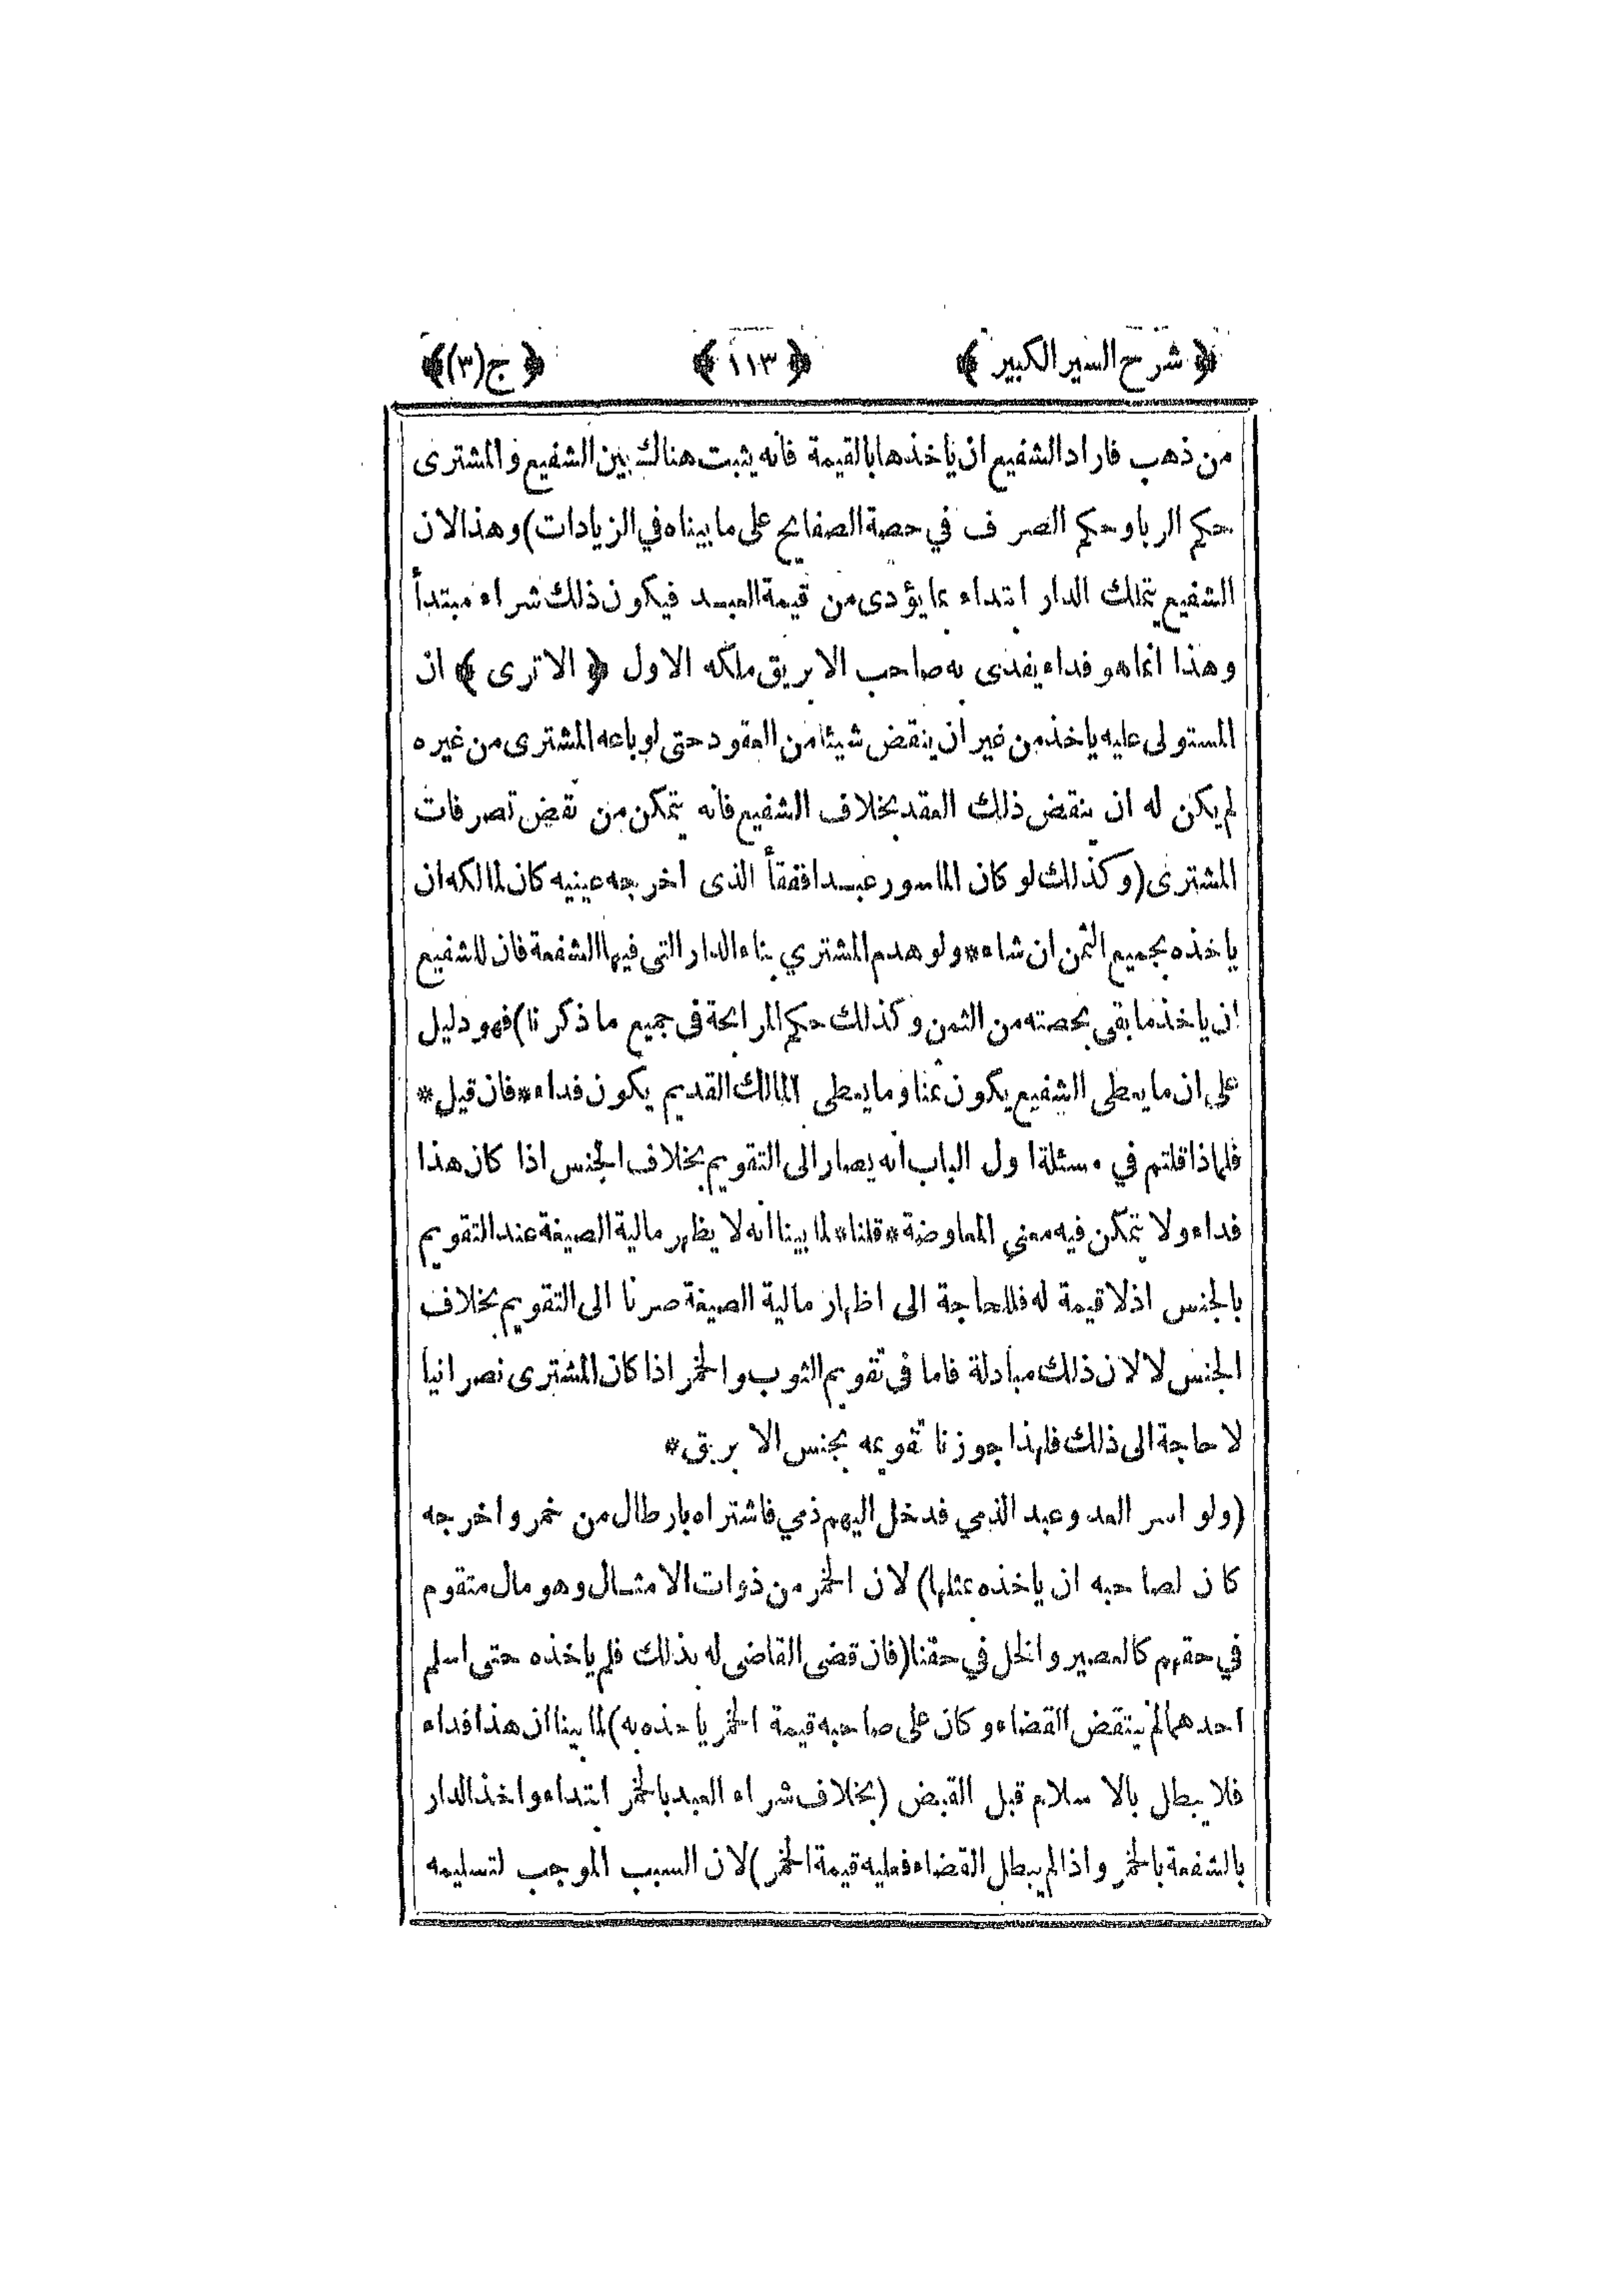 ﴿ شرح السير الكبير ﴾ ﴿ ١١٣ ﴾ ﴿ ج(٣) ﴾
من ذهب فاراد الشفيع ان ياخذها بالقيمة فانه يثبت هناك بين الشفيع والمشترى
حكم الربا وحكم الصرف في حصة الصفايح على ما بيناه في الزيادات) وهذا لان
الشفيع يتملك الدار ابتداء بما يؤدى من قيمة العبد فيكون ذلك شراء مبتدأ
وهذا انما هو فداء يفدى به صاحب الابريق ملكه الاول ﴿ الا ترى ﴾ ان
المستولى عليه ياخذ من غير ان ينقض شيئا من العقود حتى لو باعه المشترى من غيره
لم يكن له ان ينقض ذلك العقد بخلاف الشفيع فانه يتمكن من نقض تصرفات
المشترى (وكذلك لو كان الماسور عبدا ففقأ الذى اخرجه عينيه كان لمالكه ان
ياخذه بجميع الثمن ان شاء * ولو هدم المشتري بناء الدار التى فيها الشفعة فان للشفيع
ان ياخذ ما بقى بحصته من الثمن وكذلك حكم المرابحة فى جميع ما ذكرنا) فهو دليل
على ان ما يعطى الشفيع يكون ثمنا وما يعطى المالك القديم يكون فداء * فان قيل *
فلماذا قلتم في مسئلة اول الباب انه يصار الى التقويم بخلاف الجنس اذا كان هذا
فداء ولا تمكن فيه معنى المعاوضة * قلنا * لما بينا انه لا يظهر مالية الصيغة عند التقويم
بالجنس اذ لا قيمة له فللحاجة الى اظهار مالية الصيغة صرنا الى التقويم بخلاف
الجنس لا لان ذلك مبادلة فاما فى تقويم الثوب والخمر اذا كان المشترى نصرانيا
لا حاجة الى ذلك فلهذا جوزنا تقويمه بجنس الابريق *
(ولو اسر العدو عبد الذمي فدخل اليهم ذمي فاشتراه بارطال من خمر واخرجه
كان لصاحبه ان ياخذه بمثلها) لان الخمر من ذوات الامثال وهو مال متقوم
في حقهم كالعصير والخل في حقنا (فان قضى القاضى له بذلك فلم ياخذه حتى اسلم
احدهما لم ينتقض القضاء وكان على صاحبه قيمة الخمر ياخذه به) لما بينا ان هذا فداء
فلا يبطل بالاسلام قبل القبض (بخلاف شراء العبد بالخمر ابتداء واخذ الدار
بالشفعة بالخمر واذا لم يبطل القضاء فعليه قيمة الخمر) لان السبب الموجب لتسليمه